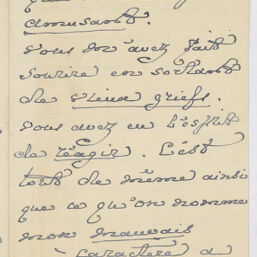 que
amusant.
Vous m'avez fait
sourire en sortant
de vieux griefs.
Vous avez eu l'esprit
de réagir. C'est
tout de même ainsi
que ce qu'on nomme
mon mauvais
caractère a